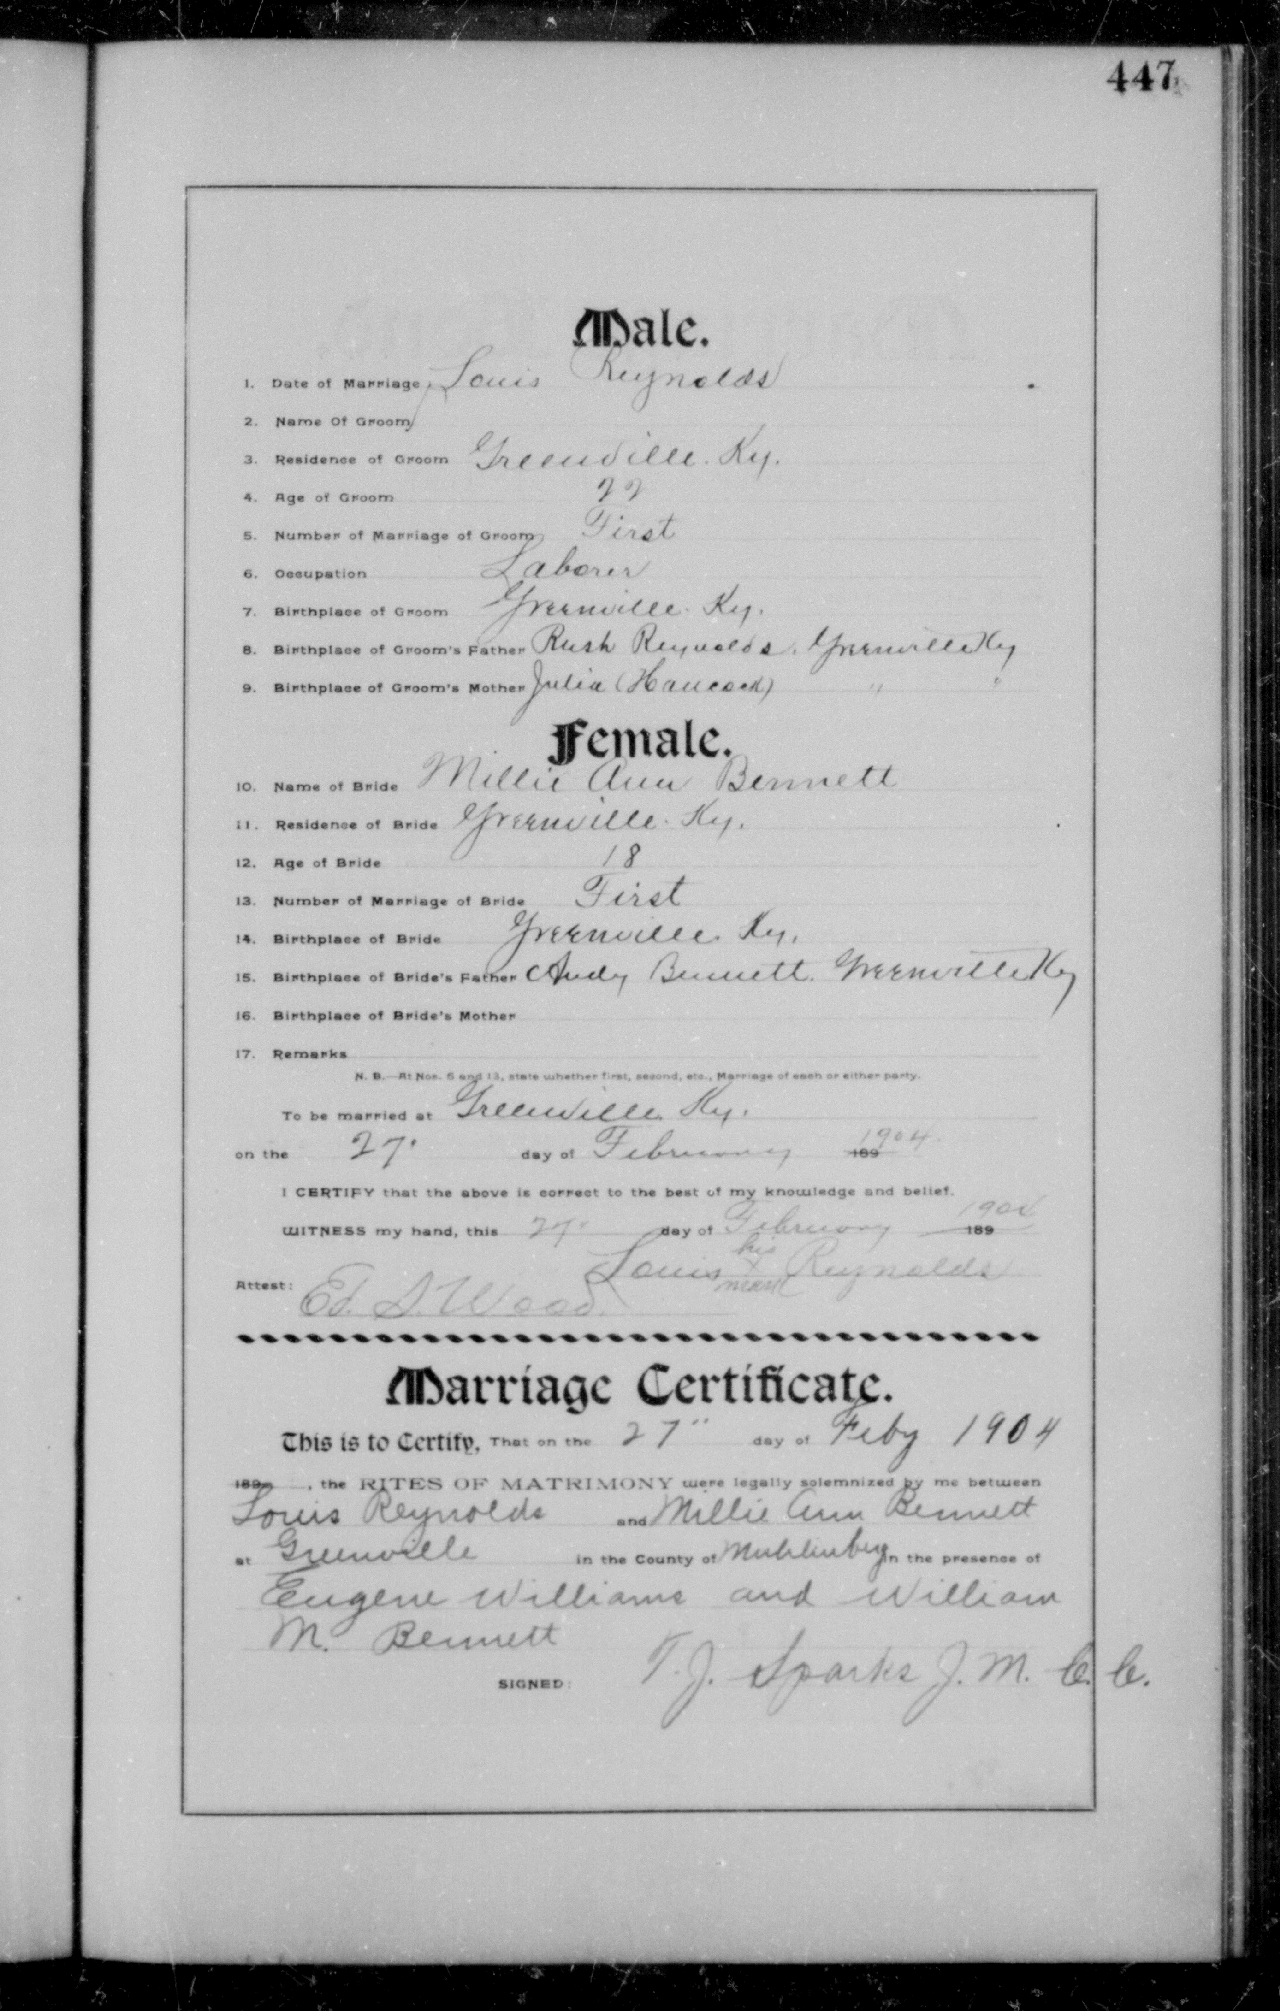 447
Male.
1. Date of Marriage Louis Reynolds
2. Name Of Groom
3. Residence of Groom Greenville. Ky.
4. Age of Groom 22
5. Number of Marriage of Groom First
6. Occupation Laborer
7. Birthplace of Groom Greenville. Ky.
8. Birthplace of Groom's Father Rush Reynolds. Greenville Ky
9. Birthplace of Groom's Mother Julia (Hancock) " "
Female.
10. Name of Bride Millie Ann Bennett
11. Residence of Bride Greenville. Ky.
12. Age of Bride 18
13. Number of Marriage of Bride First
14. Birthplace of Bride Greenville. Ky.
15. Birthplace of Bride's Father Andy Bennett. Greenville Ky
16. Birthplace of Bride's Mother
17. Remarks
N. B.—At Nos. 5 and 13, state whether first, second, etc., Marriage of each or either party.
To be married at Greenville Ky.
on the 27. day of February 189 1904.
I CERTIFY that the above is correct to the best of my knowledge and belief.
WITNESS my hand, this 27. day of February 189 1904
Louis his X mark Reynolds
Attest: Ed. S. Wood.
Marriage Certificate.
This is to Certify, That on the 27" day of Feby 1904
189 , the RITES OF MATRIMONY were legally solemnized by me between
Louis Reynolds and Millie Ann Bennett
at Greenville in the County of Muhlenberg in the presence of
Eugene Williams and William
M. Bennett
SIGNED: T. J. Sparks J. M. C. C.